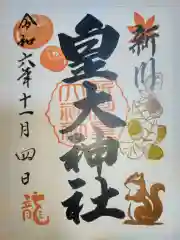 皇大神社
令和六年十一月四日
龍